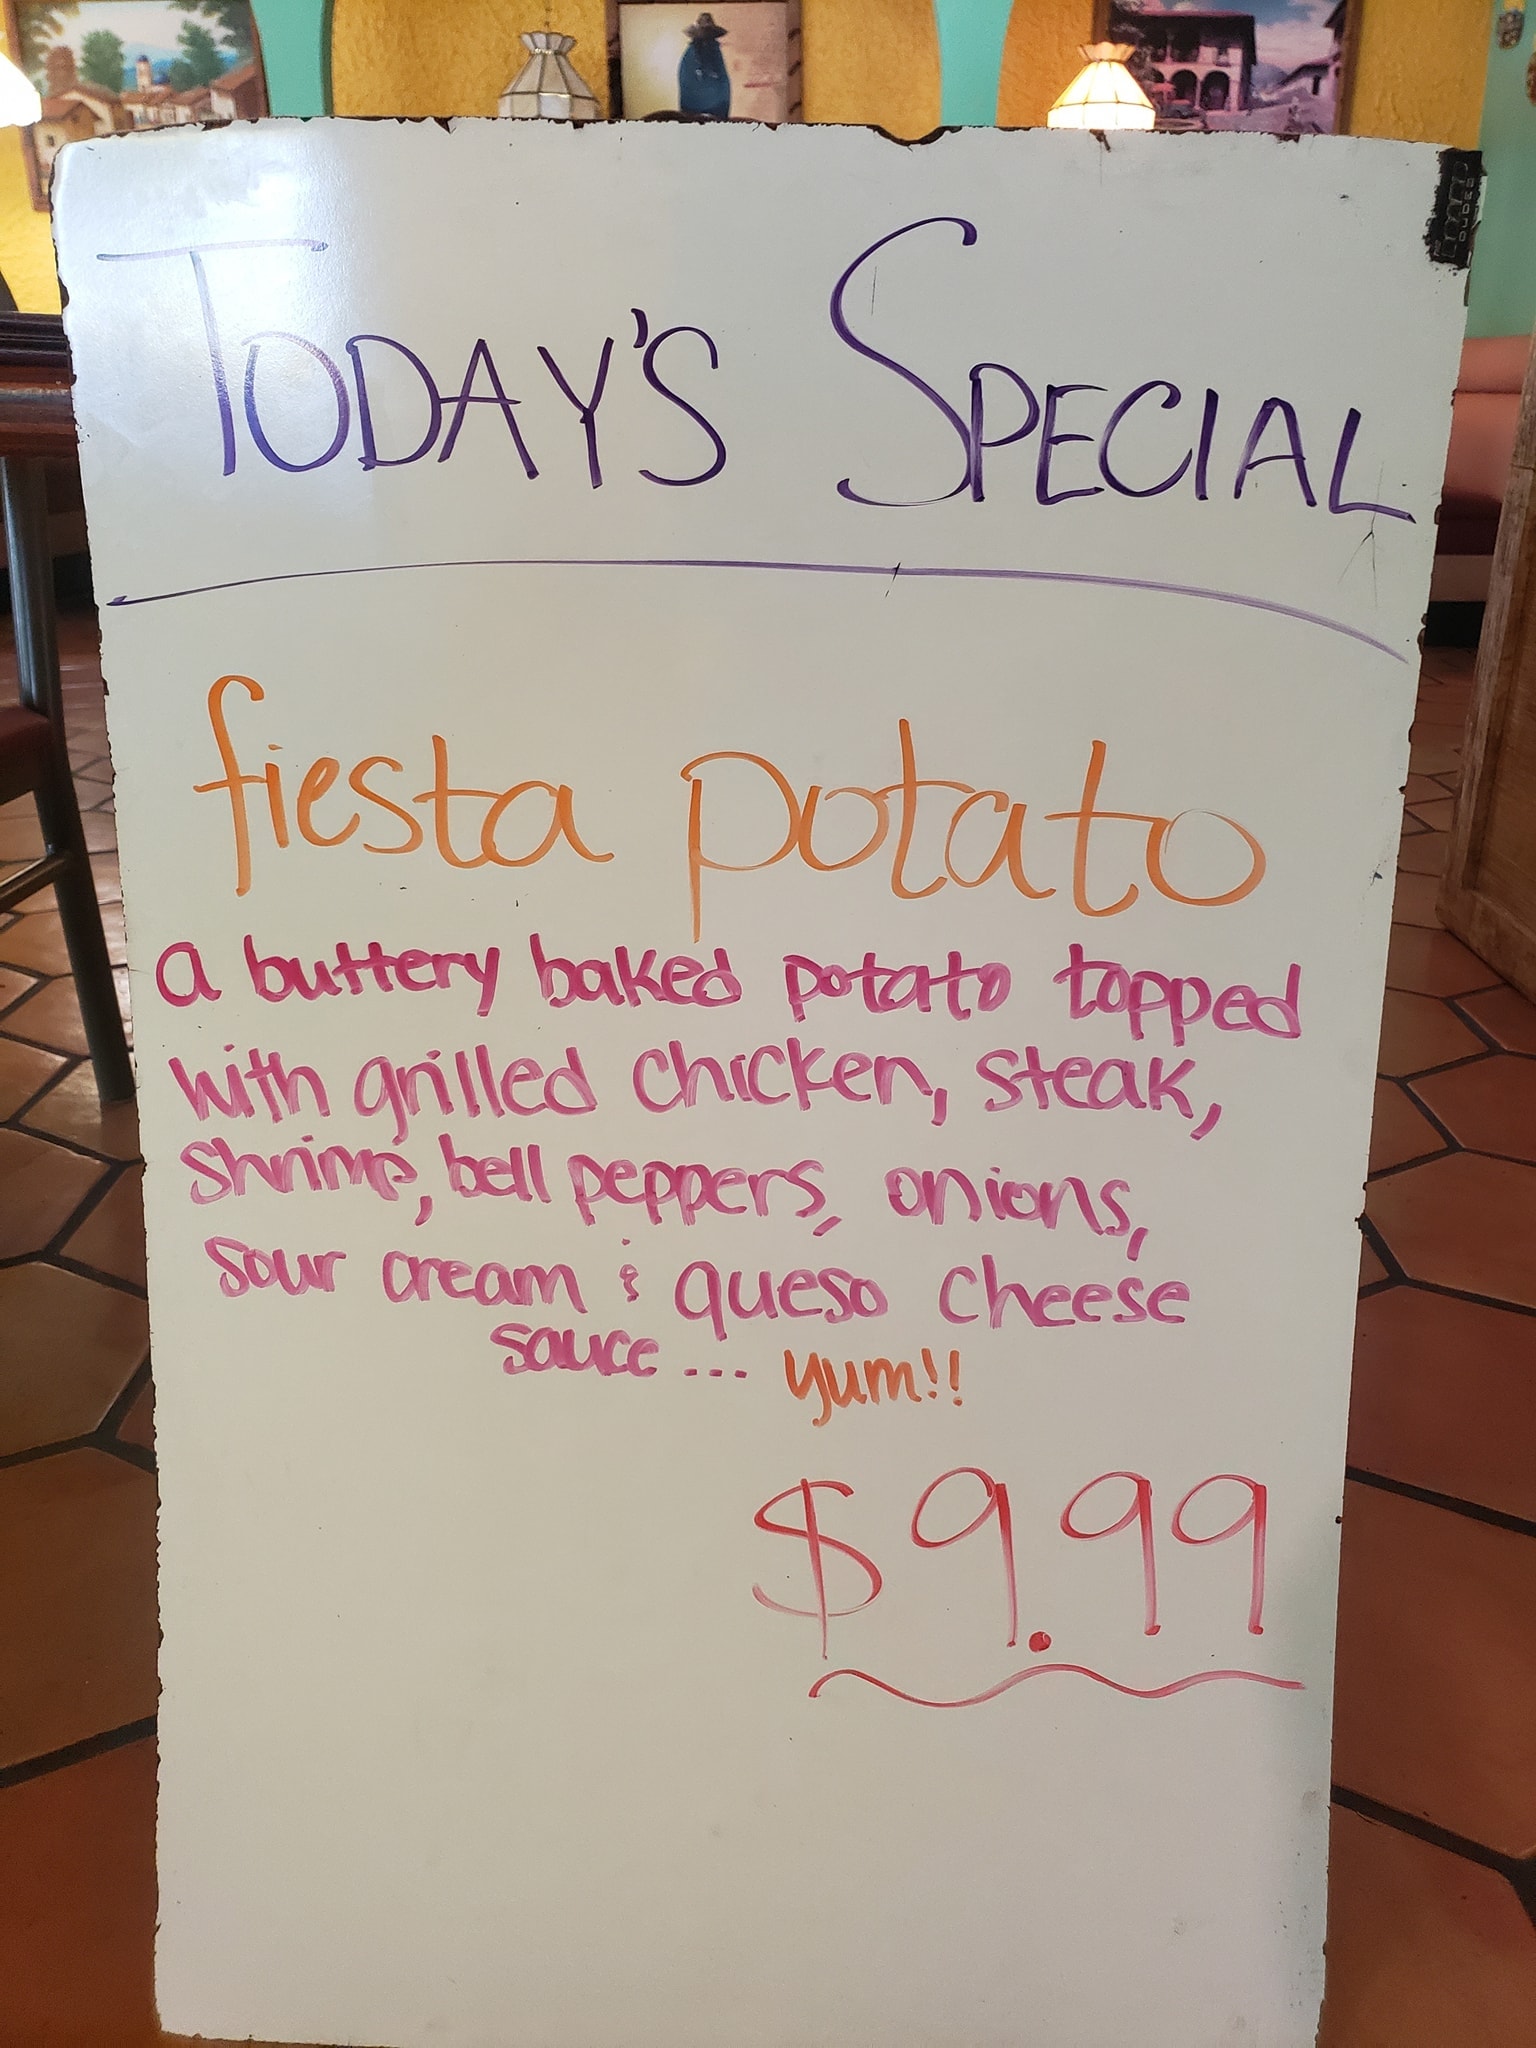 TODAY'S SPECIAL
fiesta potato
a buttery baked potato topped
with grilled chicken, steak,
shrimp, bell peppers, onions,
sour cream & queso cheese
sauce... yum!!
$9.99